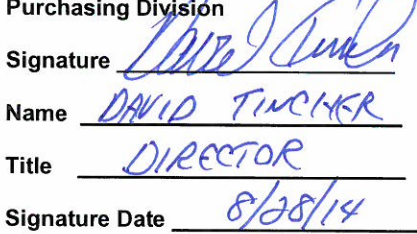 Purchasing Division
Signature David Tincher
Name DAVID TINCHER
Title DIRECTOR
Signature Date 8/28/14